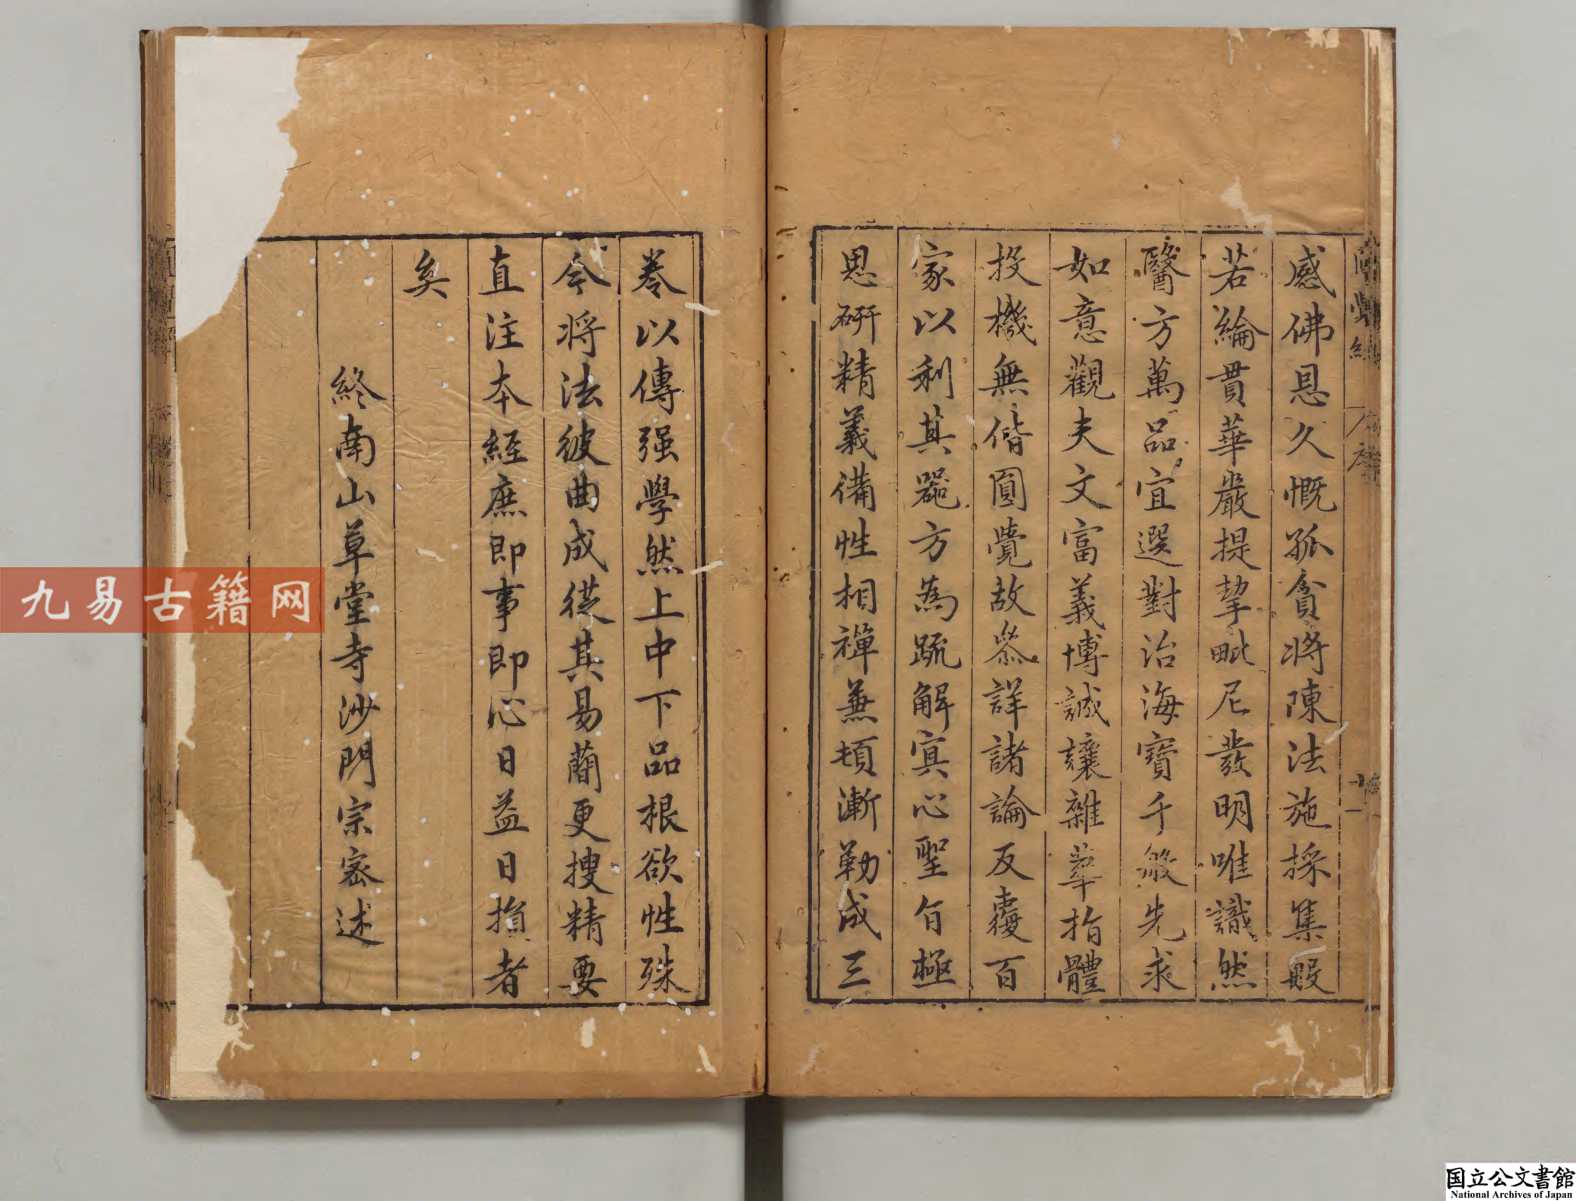 感佛恩久慨孤貪將陳法施採集般
若綸貫華嚴提挈毗尼發明唯識然
醫方萬品宜選對治海寶千般先求
如意觀夫文富義博誠讓雜華指體
投機無偕圓覺故叅詳諸論反覆百
家以利其器方為疏解冥心聖旨極
思研精義備性相禪兼頓漸勒成三
卷以傳强學然上中下品根欲性殊
今將法彼曲成從其易蕳更搜精要
直注本經庶即事即心日益日損者
矣
終南山草堂寺沙門宗密述
九易古籍网
国立公文書館
National Archives of Japan